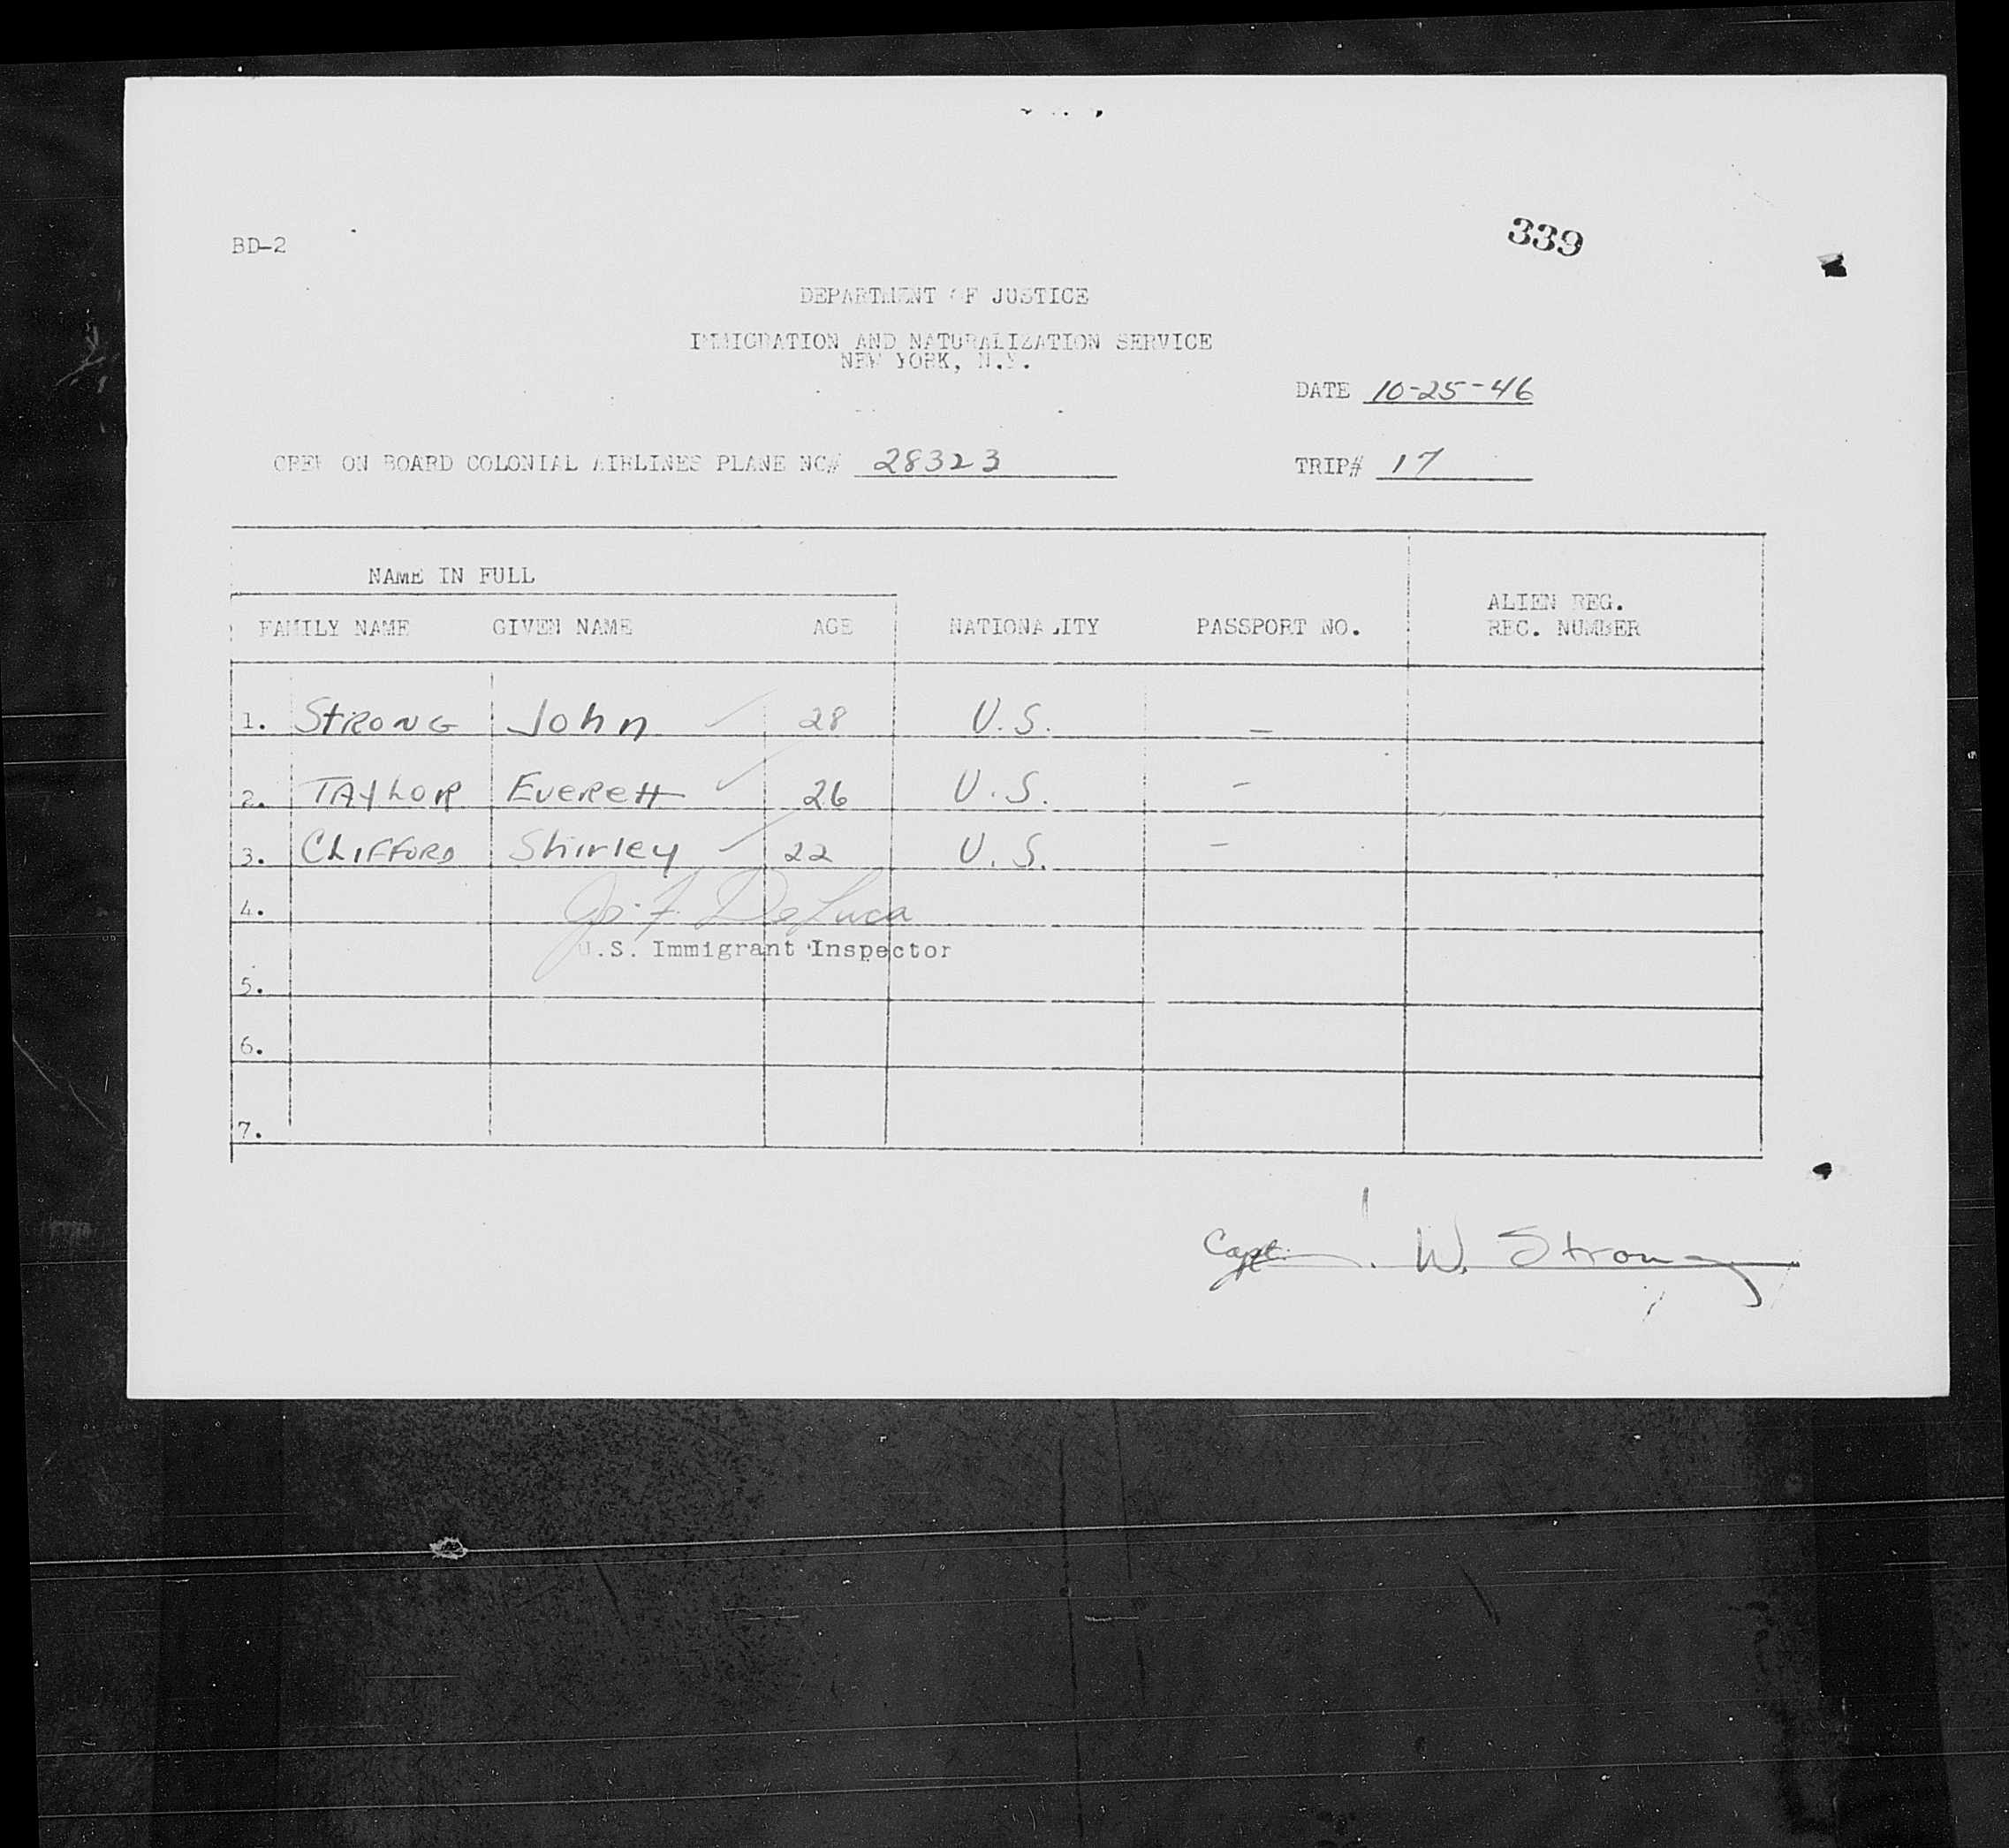 339
BD-2
DEPARTMENT OF JUSTICE
IMMIGRATION AND NATURALIZATION SERVICE
NEW YORK, N.Y.
DATE 10-25-46
CREW ON BOARD COLONIAL AIRLINES PLANE NC# 28323 TRIP# 17
NAME IN FULL
FAMILY NAME GIVEN NAME AGE NATIONALITY PASSPORT NO. ALIEN REG. REC. NUMBER
1. STRONG John ✓ 28 U.S. –
2. TAYLOR EVEREtt ✓ 26 U.S. –
3. CLIFFORD Shirley ✓ 22 U.S. –
4. F. DeLuca
U.S. Immigrant Inspector
5.
6.
7.
Capt. W. Strong